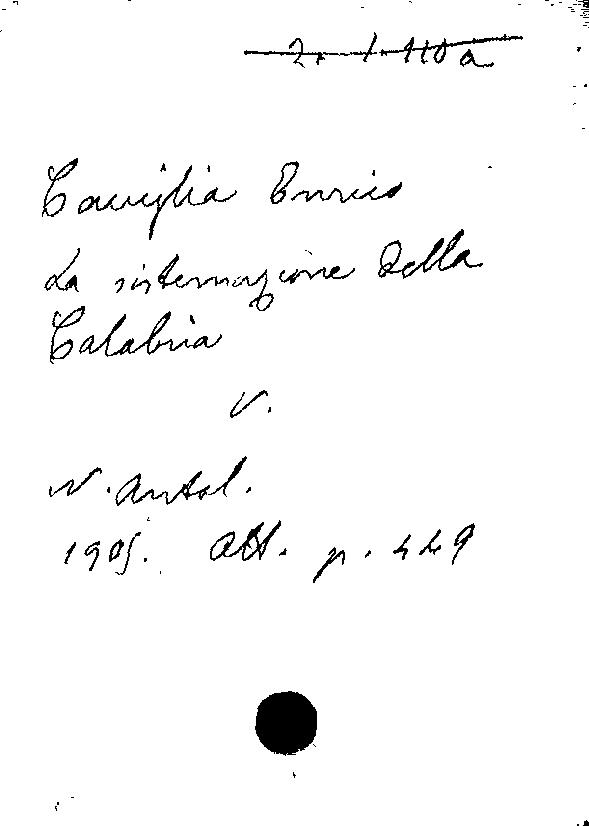 2. 1. 110 a
Caviglia Enrico
La sistemazione della
Calabria
V.
N. Antol.
1905. Ott. p. 429